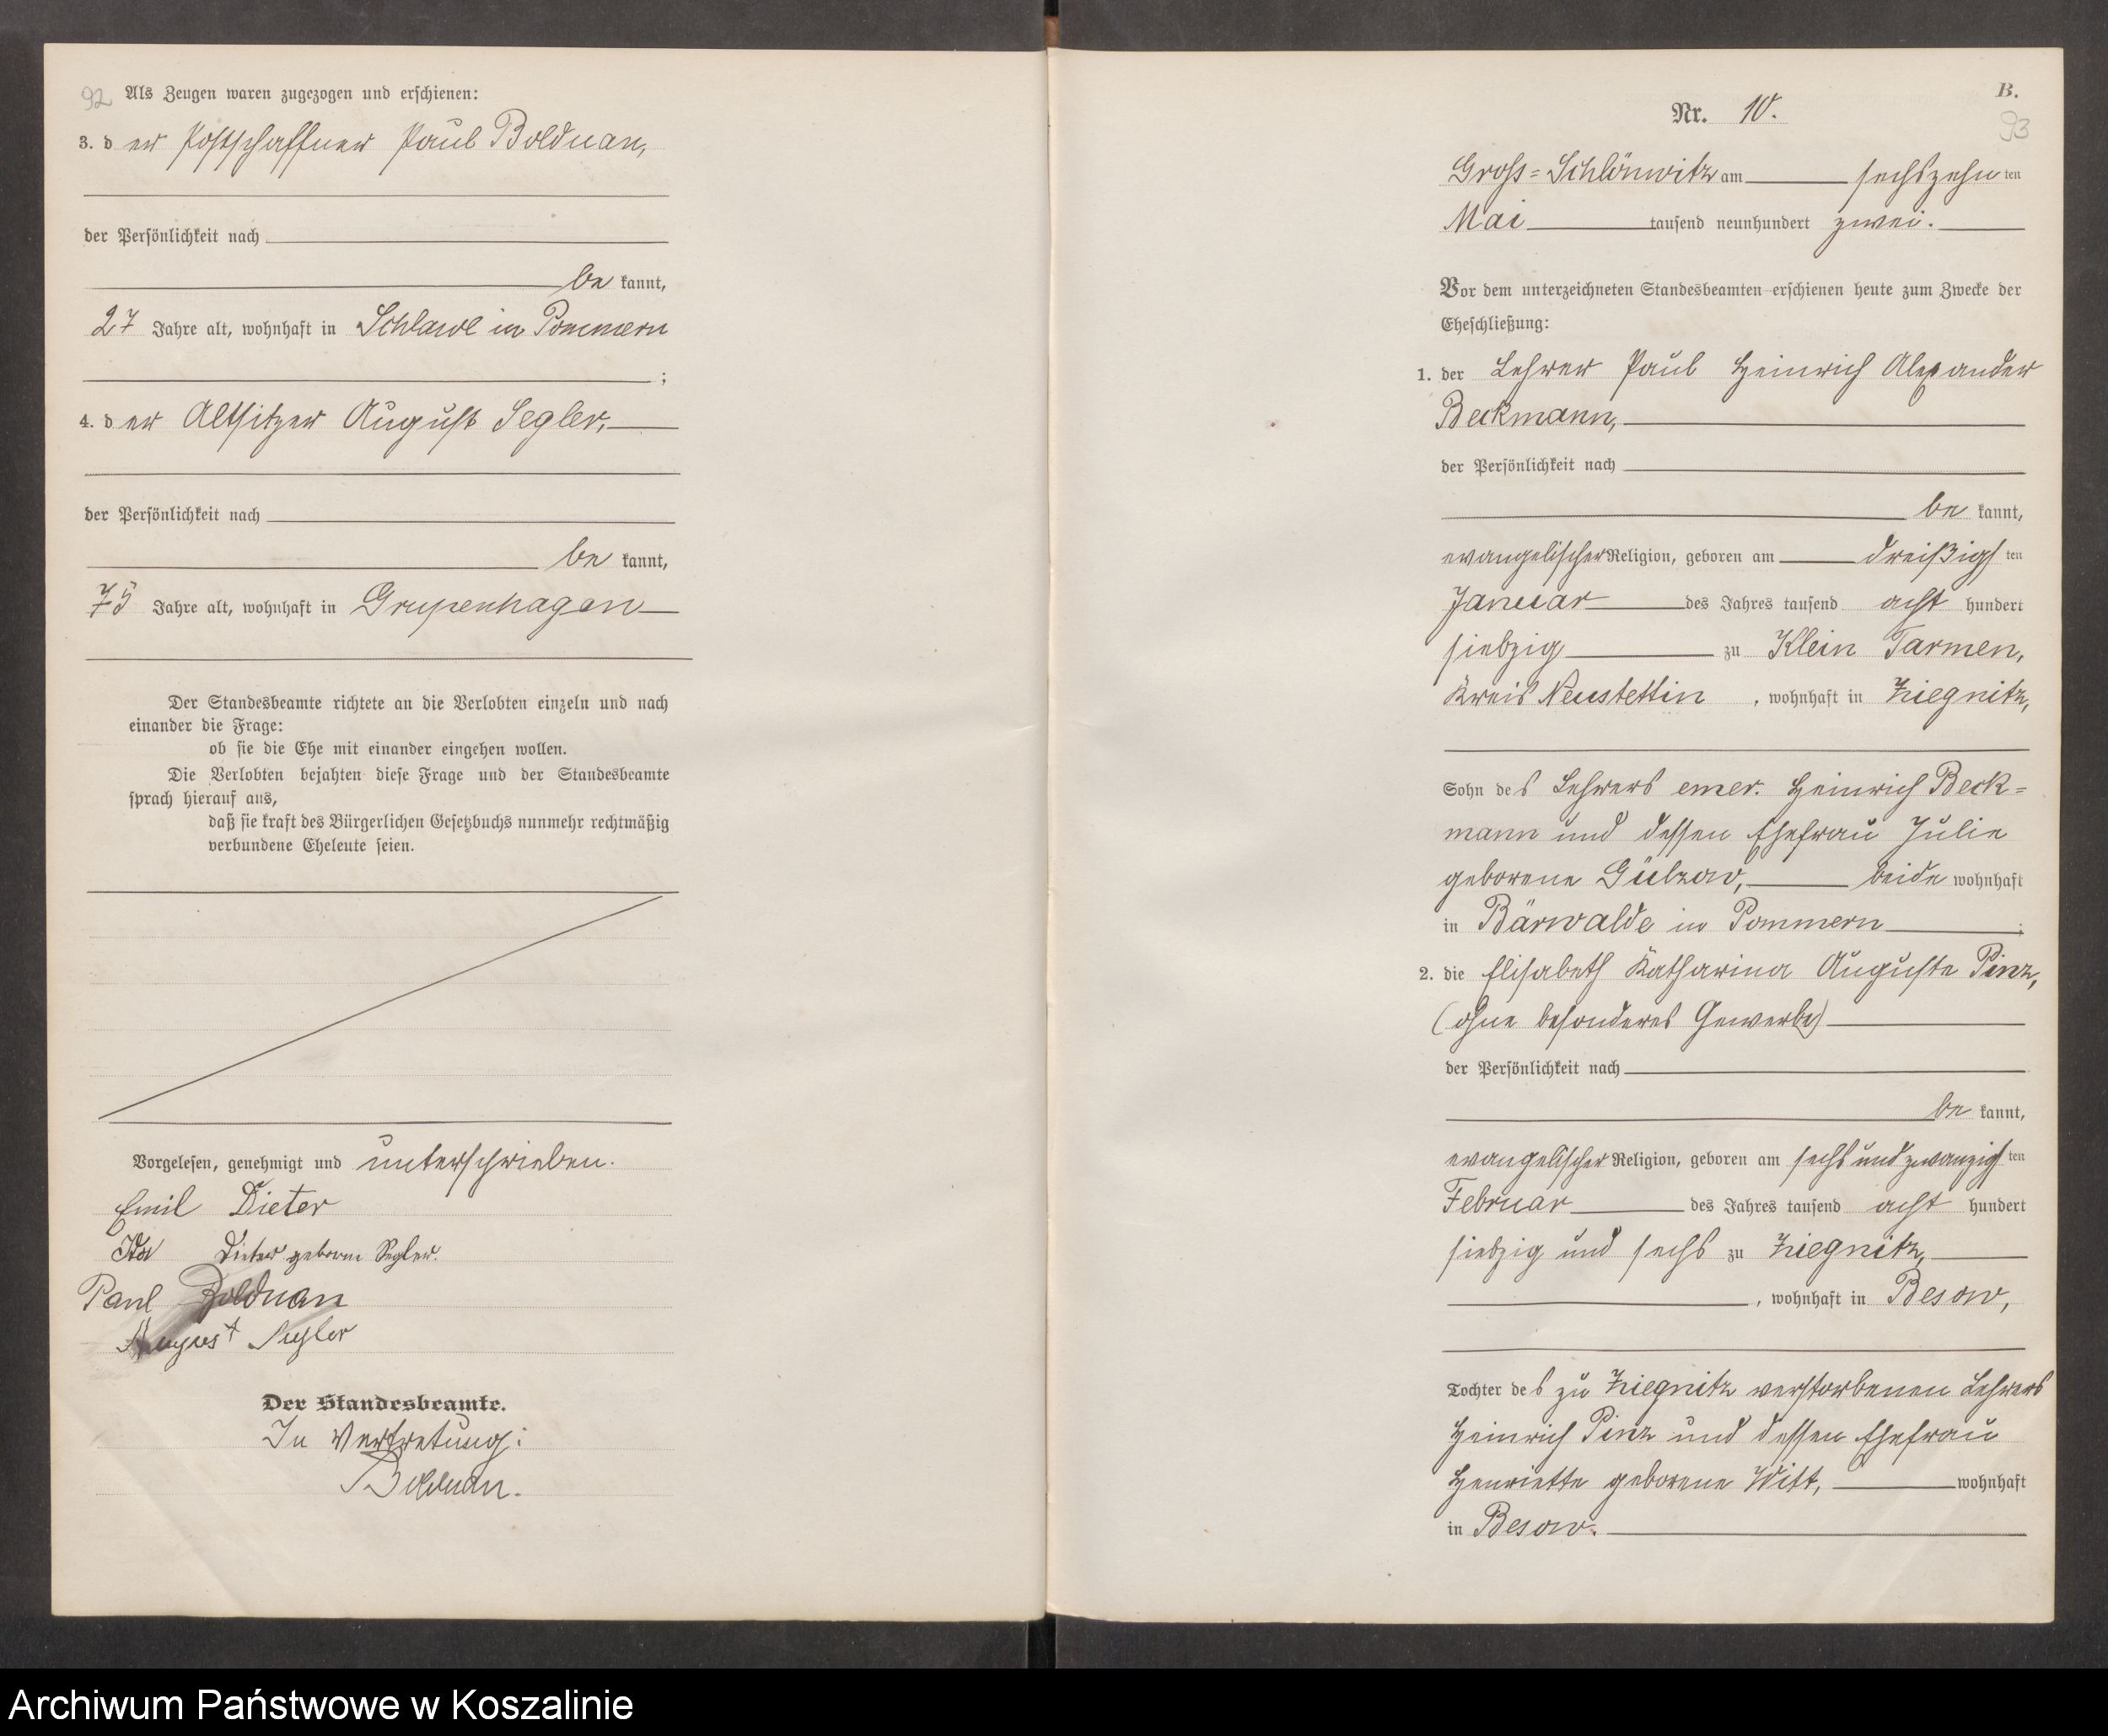 92 Als Zeugen waren zugezogen und erschienen:
3. der Postschaffner Paul Boldnan,
der Persönlichkeit nach
be kannt,
27 Jahre alt, wohnhaft in Schlawe in Pommern
;
4. der Altsitzer August Segler,
der Persönlichkeit nach
be kannt,
75 Jahre alt, wohnhaft in Grupenhagen
Der Standesbeamte richtete an die Verlobten einzeln und nach
einander die Frage:
ob sie die Ehe mit einander eingehen wollen.
Die Verlobten bejahten diese Frage und der Standesbeamte
sprach hierauf aus,
daß sie kraft des Bürgerlichen Gesetzbuchs nunmehr rechtmäßig
verbundene Eheleute seien.
Vorgelesen, genehmigt und unterschrieben.
Emil Dieter
Dieter geborne Segler.
Paul Boldnan
August Segler
Der Standesbeamte.
In Vertretung:
Boldnan.
B.
93
Nr. 10.
Gross=Schlönwitz am sechszehnten
Mai tausend neunhundert zwei.
Vor dem unterzeichneten Standesbeamten erschienen heute zum Zwecke der
Eheschließung:
1. der Lehrer Paul Heinrich Alexander
Beckmann,
der Persönlichkeit nach
be kannt,
evangelischer Religion, geboren am dreißigsten
Januar des Jahres tausend acht hundert
siebzig zu Klein Tarmen,
Kreis Neustettin, wohnhaft in Ziegnitz,
Sohn des Lehrers emer. Heinrich Beck=
mann und dessen Ehefrau Julie
geborene Gülzow, beide wohnhaft
in Bärwalde in Pommern ;
2. die Elisabeth Katharina Auguste Pinz,
(ohne besonderes Gewerbe)
der Persönlichkeit nach
be kannt,
evangelischer Religion, geboren am sechsundzwanzigsten
Februar des Jahres tausend acht hundert
siebzig und sechs zu Ziegnitz,
, wohnhaft in Besow,
Tochter des zu Ziegnitz verstorbenen Lehrers
Heinrich Pinz und dessen Ehefrau
Henriette geborene Witt, wohnhaft
in Besow.
Archiwum Państwowe w Koszalinie